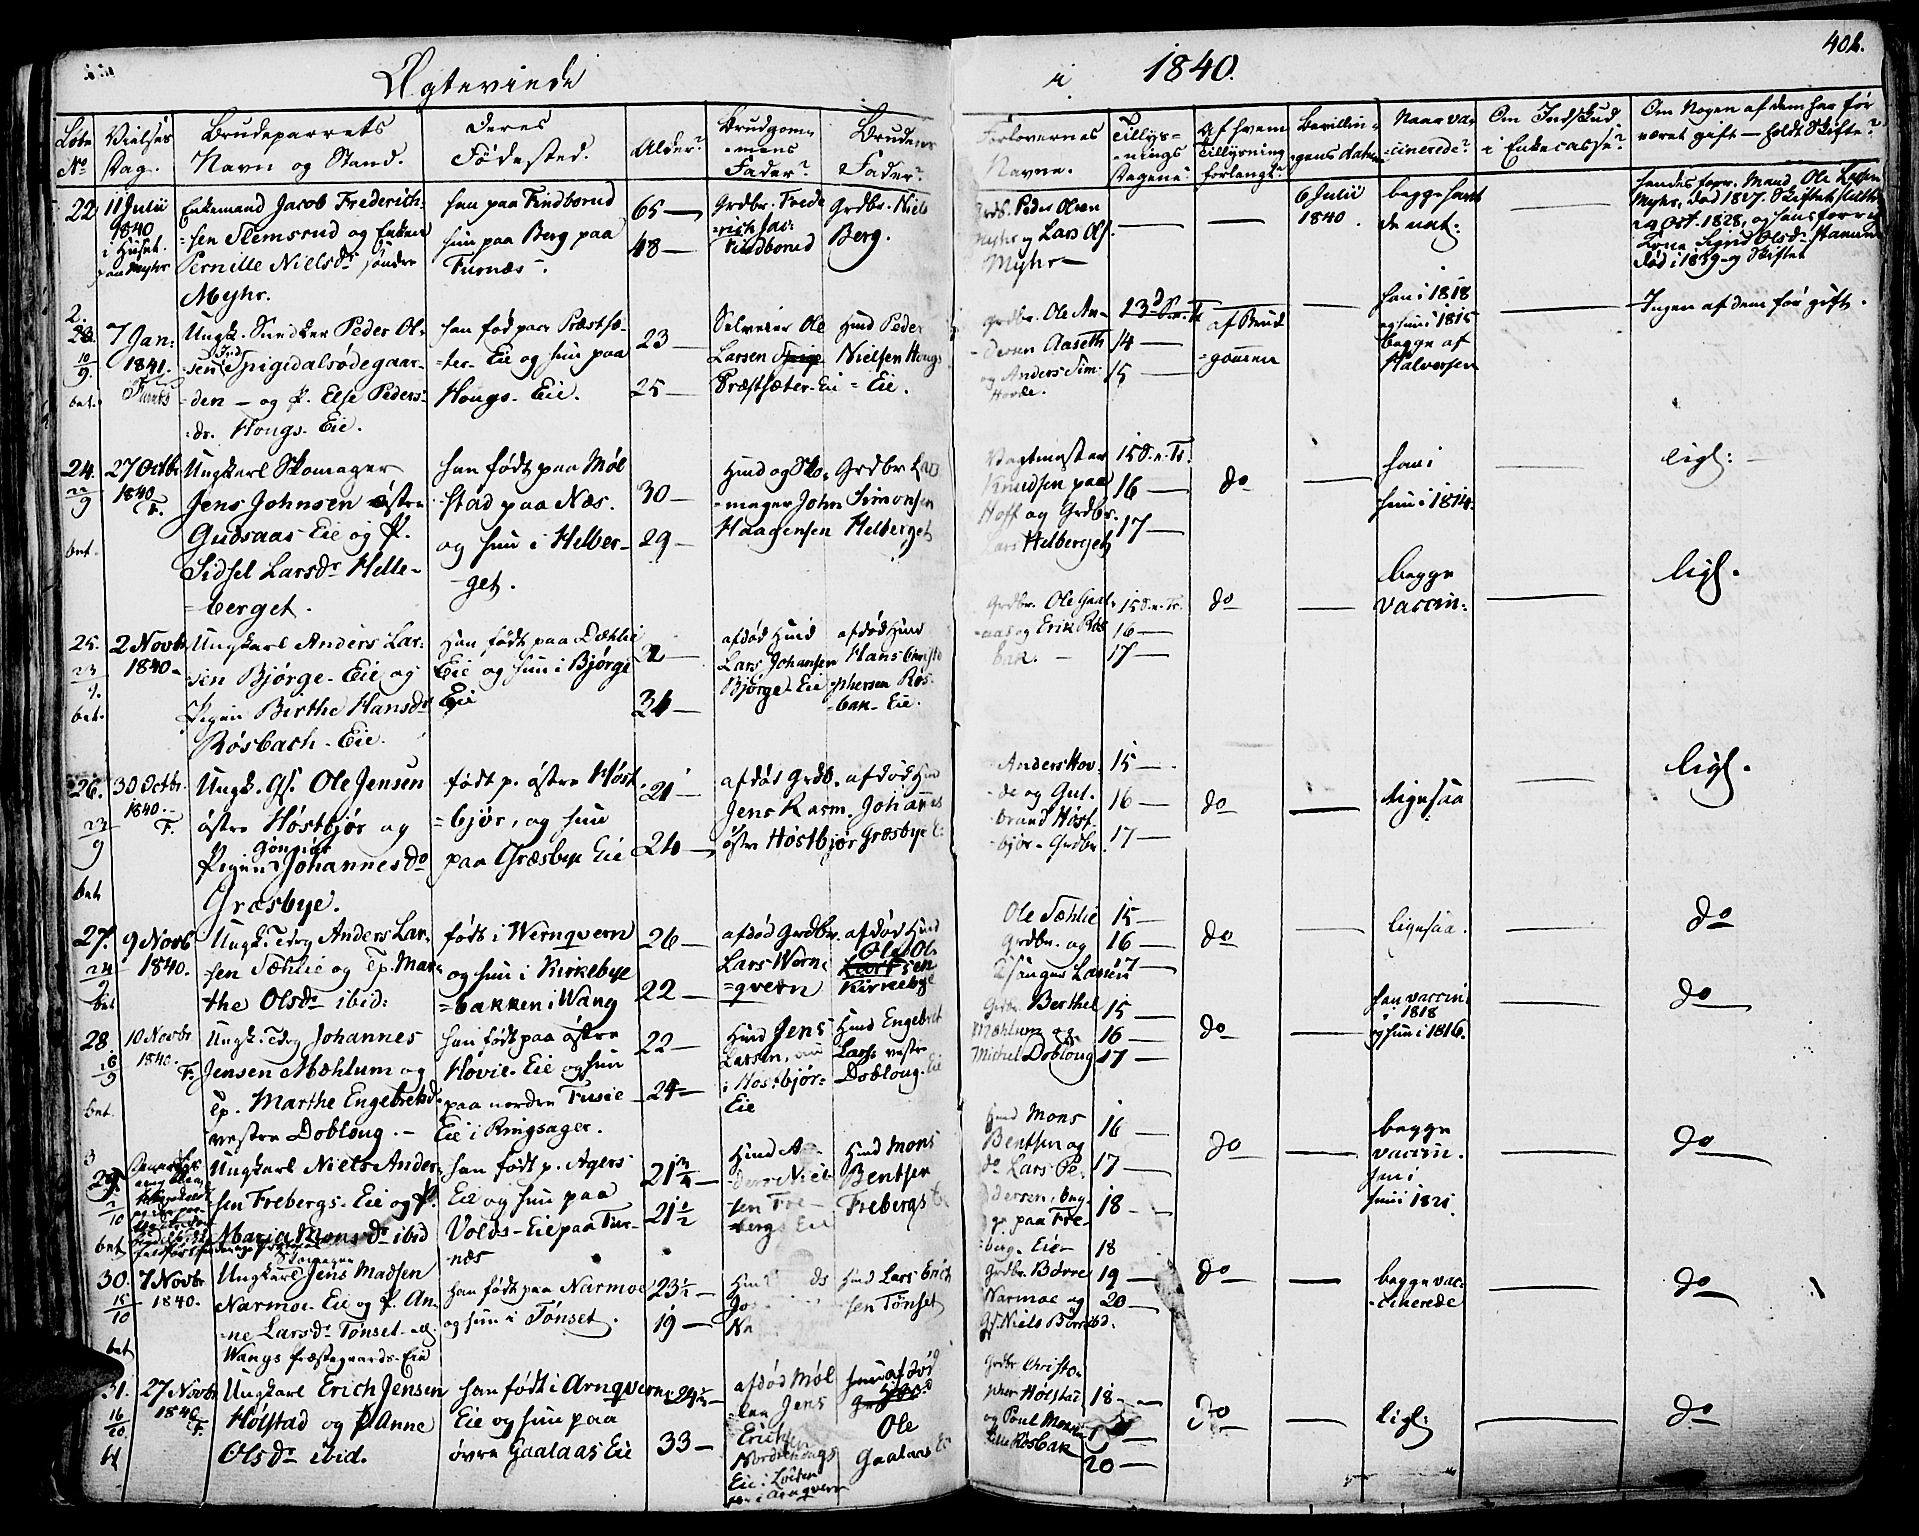 Ægteviede
i 1840.
402.
Løbe No
Vielses Dag.
Brudeparrets Navn og Stand.
Deres Fødested.
Alder?
Brudgommens Fader?
Brudens Fader?
Forlovernes Navne.
Tillysnings Dagene?
Af hvem Tillysning forlangt?
Bevillingens datum
Naar vaccinerede?
Om Indskud i Enkecasse?
Om Nogen af dem har før været gift — holdt Skifte?
22
11 Julii
1840
i Huset
paa Myhr
Enkemand Jacob Frederich-
sen Stemsrud og Enken
Pernille Nielsdr søndre
Myhr.
han paa Findborud
hun paa Berg paa
Furnæs
65 —
48 —
Grdbr. Frede
rich Isac:
Findborud
Grdbr. Niels
Berg.
Grdb. Peder Olsen
Myhr og Lars Ols.
Myhr —
6 Julii
1840.
begge havt
de nat:
hendes forr. Mand Ole Larsen
Myhr, død 1827. Skiftet sluttet
29 Oct. 1828, og hans forrige
Kone Sigrid Olsdr
død i 1839 og Skiftet
2.
23
10/9.
bet.
7 Jan:
1841.
Furnæs
Ungk. Snedker Peder Ol-
sen Spigedalsødegaar-
den — og P. Else Peders-
dr. Hougs-Eie.
han fød paa Præstsæ-
ter-Eie og hun paa
Hougs-Eie.
23 —
25 —
Selveier Ole
Larsen
Præstsæter-Eie
Husd Peder
Nielsen Hougs
Eie.
Grdbr. Ole An-
dersen Aaseth
og Anders Sim:
Hovde.
13 d S. n. T.
14 —
15 —
af Brud
gommen
han i 1818
og hun i 1815
begge af
Halvorsen
Ingen af dem før gift.
24.
22/9
bet.
27 Octbr
1840
F.
Ungkarl Skomager
Jens Johnsen østre
Gudsaas Eie og P.
Sidsel Larsdr Helle-
berget.
han født paa Møl
stad paa Næs.
og hun i Helber-
get.
30 —
29 —
Husd og Sko-
mager John
Haagensen
Grdbr Lars
Simonsen
Helberget
Vagtmester
Knudsen paa
Hoff og Grdbr.
Lars Helberget
15 S. n. Tr.
16 —
17 —
do
han i
hun i 1814.
ligl: —
25.
23/9.
bet.
2 Novbr
1840.
Ungkarl Anders Lar-
sen Bjørge-Eie og
Pigen Berthe Hansdr
Røsbach-Eie.
Han født paa Dæhlie
Eie og hun i Bjørge
Eie
32 —
34 —
afdød Husd
Lars Johansen
Bjørge-Eie
afdød Husd
Hans Christo
phersen Røs-
bak-Eie.
Grdbr. Ole Gaal-
aas og Erik Røs
bak. —
15 S. n. Tr.
16 —
17 —
do
begge
vaccin:
ligl.
26.
23/9
bet
30 Octbr.
1840.
F.
Ungk. Gs. Ole Jensen
østre Høstbjør og
Pigen Gønnior Johannesdr
Græsbye.
født p. østre Høst
bjør, og hun
paa Græsbye Eie
21 —
24 —
afdød Grdb.
Jens Rasm.
østre Høstbjør
afdød Husd
Johannes
Græsbye E:
Anders Hov-
de og Gul-
brand Høst-
bjør-Grdbr.
15 —
16 —
17 —
do
ligesaa
ligl.
27.
24/9
bet
9 Novb
1840.
Ungk. Tdrg Anders Lar-
sen Sæhlie og Tp. Mar-
the Olsdr ibid:
født i Wernqvern
og hun i Kirkebye
bakken i Wang
26 —
22 —
afdød Grdbr.
Lars Wern-
qvern
afdød Husd
Ole Ol-
sen
Kirkebye
Ole Sæhlie
Grdbr. og
15 —
16 —
17 —
do
ligesaa.
do
28.
bet.
10 Novbr
1840.
F.
Ungk. Tdrg Johannes
Jensen Mæhlum og
Tp. Marthe Engebretsd.
vestre Dobloug. —
han født paa østre
Høvie-Eie og hun
paa nordre Tusie-
Eie i Ringsager.
22 —
24 —
Husd Jens
Larsen, nu
i Høstbjør-
Eie
Husd Engebret
Lars. vestre
Dobloug-Eie
Grdbr. Berthel
Mæhlum og
Michel Dobloug
15 —
16 —
17 —
do
han vaccin:
i 1818
og hun i 1816.
do
29.
2/10
bet
Ungkarl Niels Ander-
sen Frebergs-Eie og P.
Maria Monsdr ibid
han født p. Agers
Eie og hun paa
Volds-Eie paa Fur-
næs
21 3/4 —
21 1/2
Husd A-
ders Niel
sen Fre-
bergs Eie
Husd Mons
Bentsen
Frebergs E:
Husd Mons
Bentsen og
do Lars Pe-
dersen, beg-
ge paa Fre-
berg-Eie
16 —
17 —
18 —
do
begge
vaccin.
han i
hun i 1821.
do
30.
15/10
bet
7 Novbr
1840.
Ungkarl Skomager Jens Madsen
Narmoe-Eie og P. An-
ne Larsdr Tønset
Wangs Præstegaards-Eie
han født paa Narmoe
og hun i Tønset.
23 1/2 —
19 —
Husd Lars Erich
sen Tønset
Grdbr. Børre
Narmoe og
Gs. Niels Børresd.
18
19 —
20 —
do
begge vac-
cinerede
do
31.
16/10.
bt
27 Novbr
1840
F.
Ungkarl Erich Jensen
Hølstad og P. Anne
Olsdr ibid.
han født i Arnqvern
Eie og hun paa
øvre Gaalaas Eie
24 1/2 —
33 —
afdød Møl
ler Jens
Erichs
Nordrehougs
Eie i Løiten
før i Arnqvern
hun afdød
Ole
Gaalaas E:
Grdbr Christo-
pher Hølstad
og Poul
Røsbak
18 —
20 —
do
ligl:
do